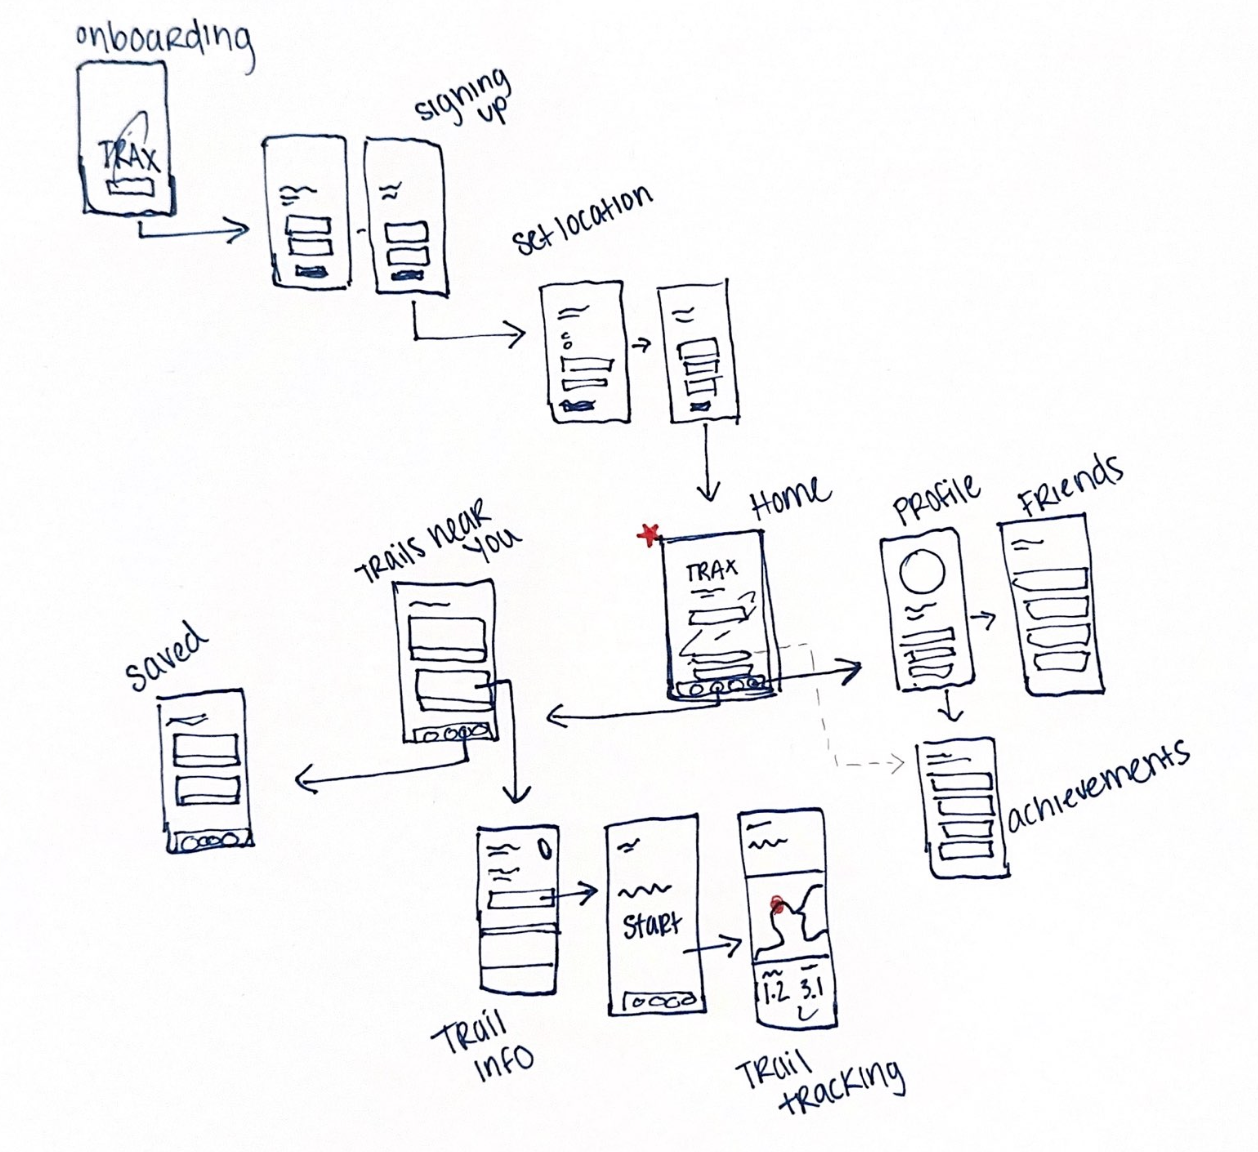 onboarding
TRAX
signing
up
set location
Home
TRAX
Profile
Friends
Trails near
you
saved
achievements
Start
1.2 3.1
Trail
info
Trail
tracking